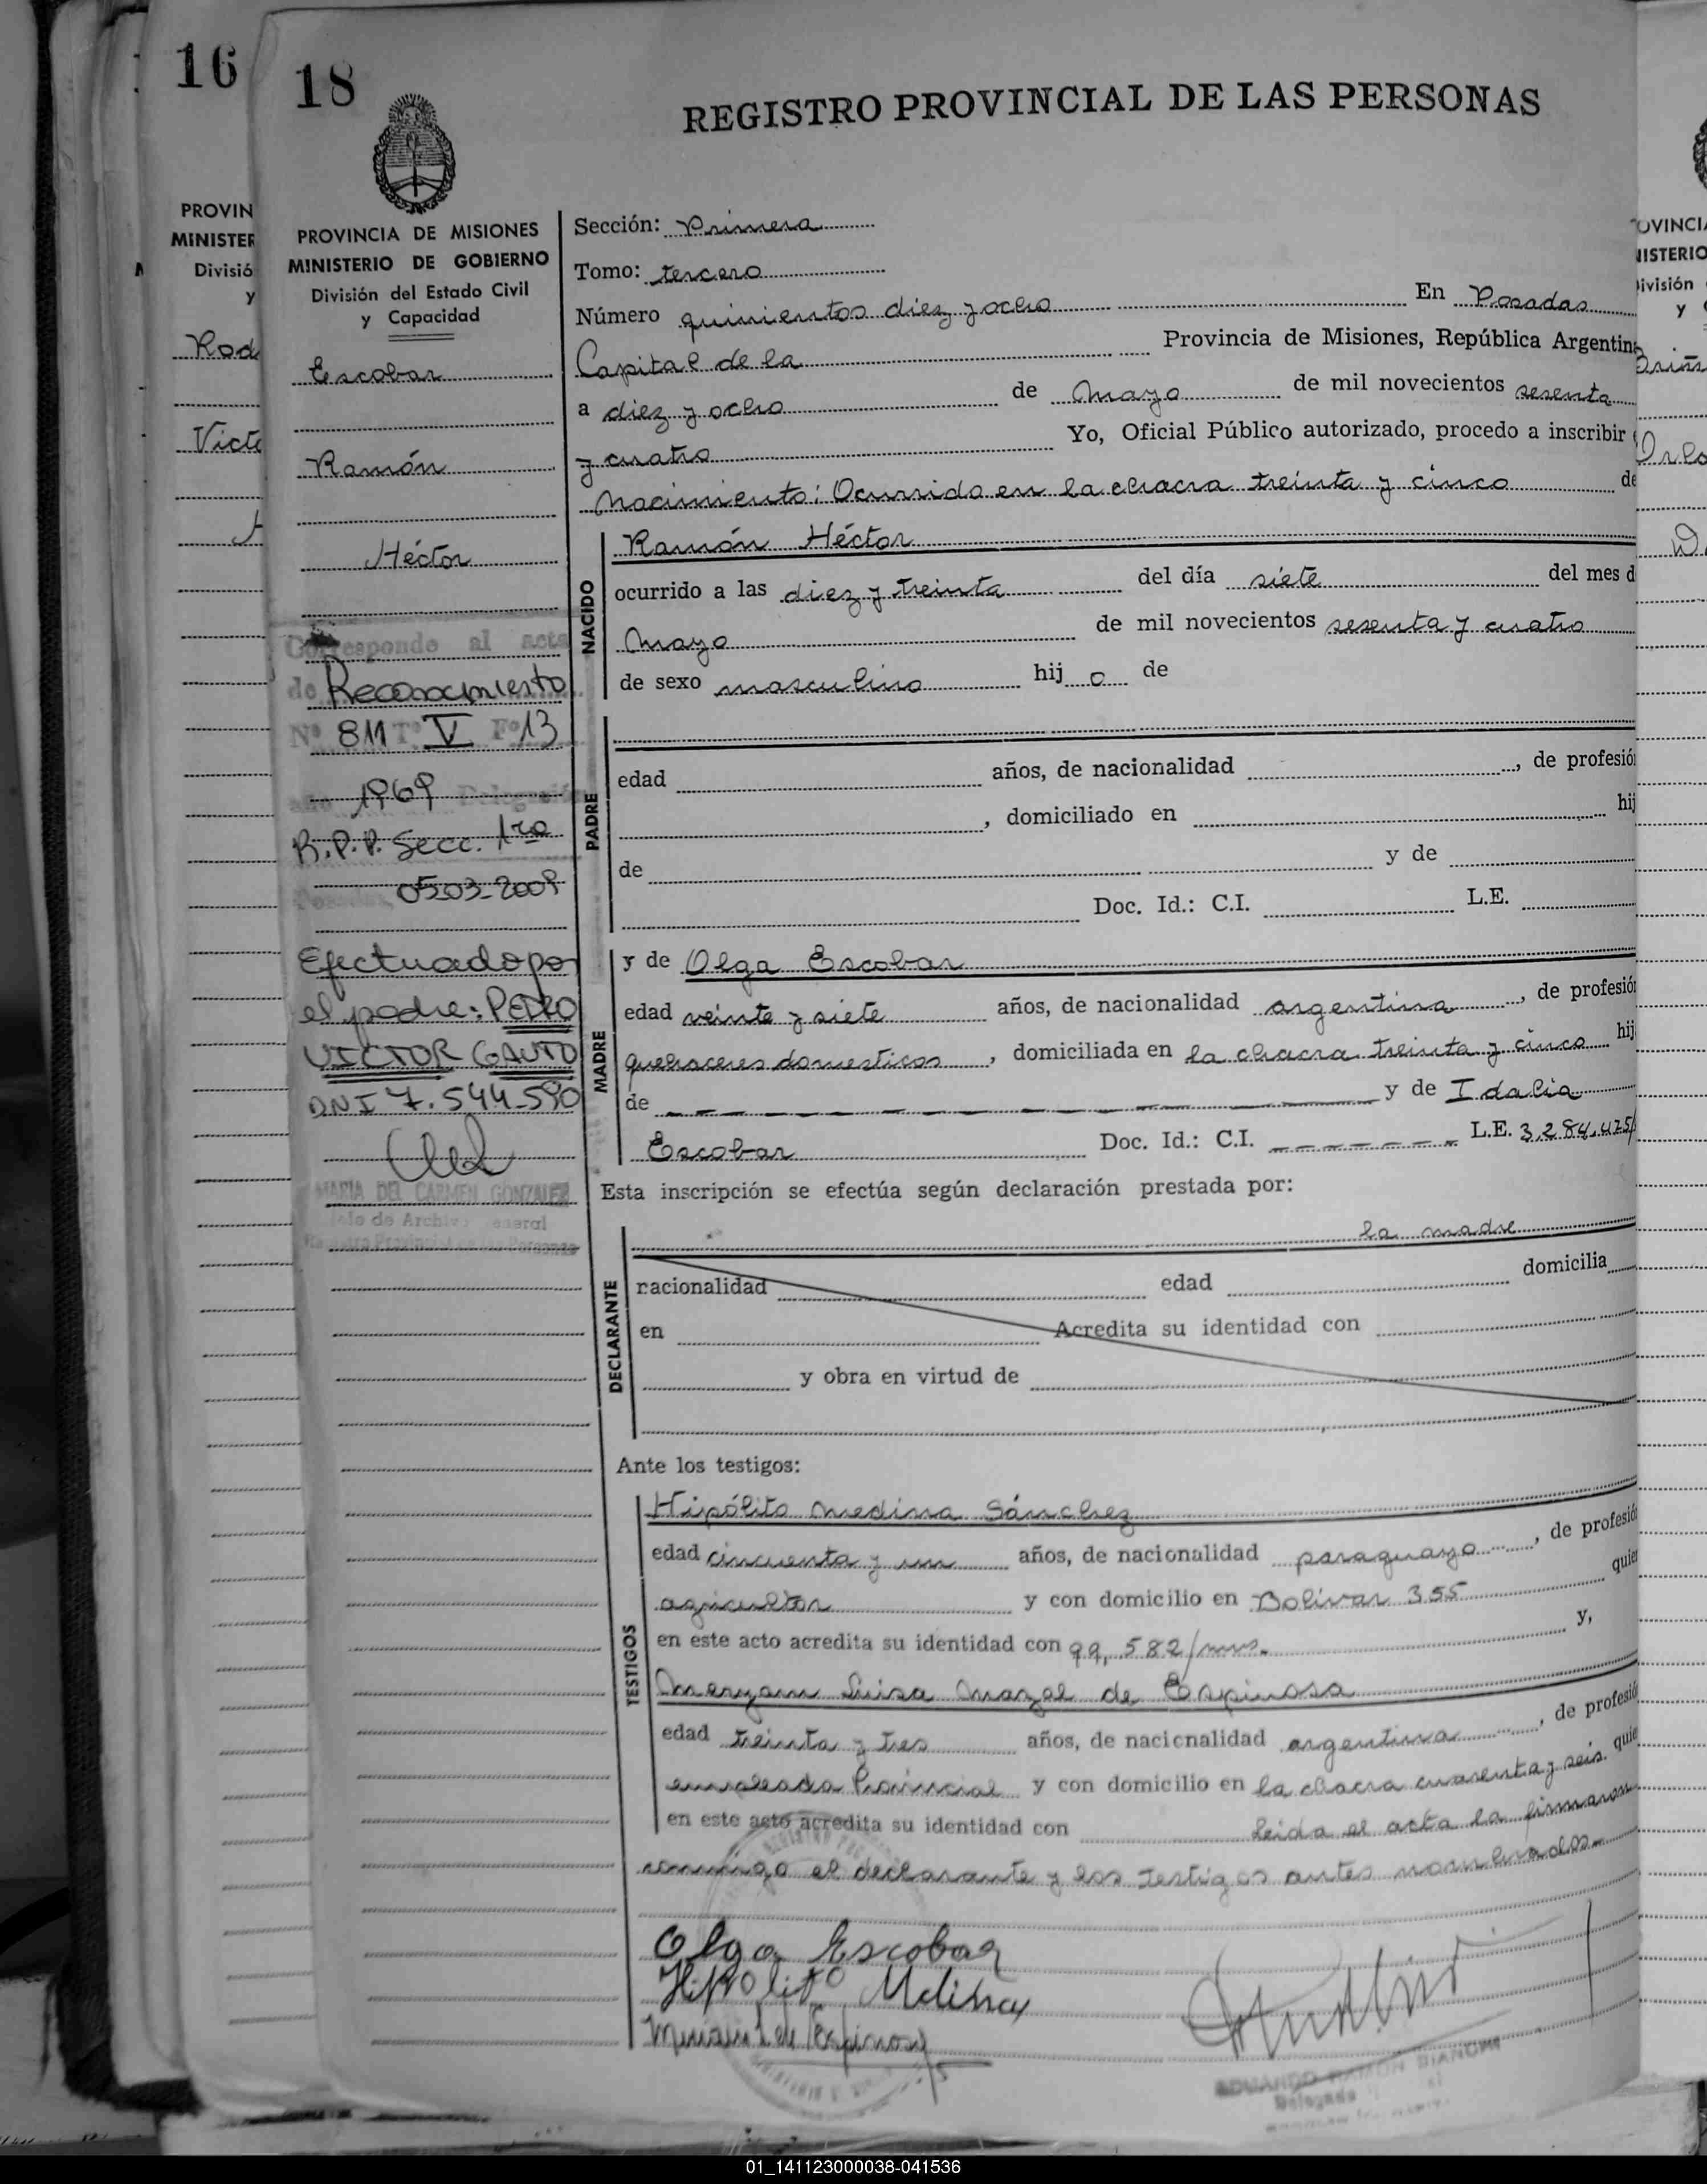 16
18
REGISTRO PROVINCIAL DE LAS PERSONAS
PROVIN
MINISTER
Divisió
y
Rod
Victo
PROVINCIA DE MISIONES
MINISTERIO DE GOBIERNO
División del Estado Civil
y Capacidad
Escobar
Ramón
Héctor
Corresponde al acta
de Reconocimiento
Nº 811 Tº V Fº 13
año 1969
R.P.P. Secc. 1ra
Posadas, 05-03-2009
Efectuado por
el padre: PEDRO
VICTOR GAUTO
DNI 7.544.590
MARIA DEL CARMEN GONZALEZ
Jefe de Archivo General
Registro Provincial de las Personas
Sección: Primera
Tomo: tercero
Número quinientos diez y ocho En Posadas
Capital de la Provincia de Misiones, República Argentina
a diez y ocho de Mayo de mil novecientos sesenta
y cuatro Yo, Oficial Público autorizado, procedo a inscribir
Nacimiento: Ocurrido en la chacra treinta y cinco de
NACIDO
Ramón Héctor
ocurrido a las diez y treinta del día siete del mes d
Mayo de mil novecientos sesenta y cuatro
de sexo masculino hij o de
PADRE
edad años, de nacionalidad , de profesió
, domiciliado en hij
de y de
Doc. Id.: C.I. L.E.
MADRE
y de Olga Escobar
edad veinte y siete años, de nacionalidad argentina , de profesió
quehaceres domesticos , domiciliada en la chacra treinta y cinco hij
de y de Idalia
Escobar Doc. Id.: C.I. L.E. 3.284.475/
Esta inscripción se efectúa según declaración prestada por:
DECLARANTE
la madre
nacionalidad edad domicilia
en Acredita su identidad con
y obra en virtud de
Ante los testigos:
TESTIGOS
Hipólito Medina Sánchez
edad cincuenta y un años, de nacionalidad paraguayo , de profesió
agricultor y con domicilio en Bolívar 355 quie
en este acto acredita su identidad con 99,582/mns. y,
Meryam Luisa Mazal de Espinosa
edad treinta y tres años, de nacionalidad argentina , de profesió
empleada Provincial y con domicilio en la chacra cuarenta y seis quie
en este acto acredita su identidad con leida el acta la firmaron
conmigo el declarante y los testigos antes nombrados.
Olga Escobar
Hipolito Medina
Miriam L de Espinosa
EDUARDO RAMON BIANCHI
Delegado
OVINCIA
NISTERIO
ivisión
y
01_141123000038-041536